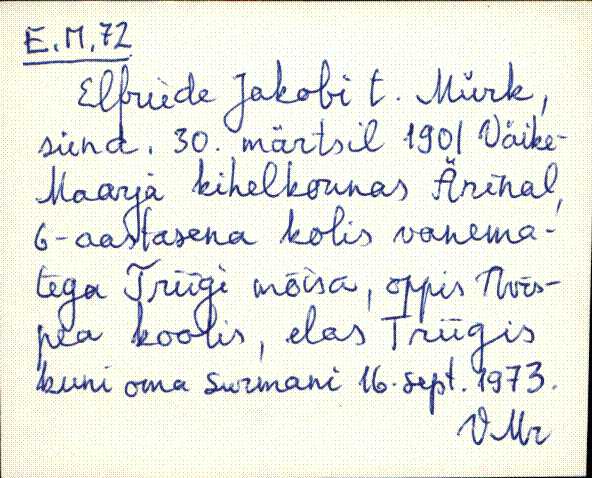 E.M.72
Elfriede Jakobi t. Mürk,
sünd. 30. märtsil 1901 Väike-
Maarja kihelkonnas Ärinal,
6-aastasena kolis vanema-
tega Triigi mõisa, õppis Nõis-
pea koolis, elas Triigis
kuni oma surmani 16. sept. 1973.
VMr